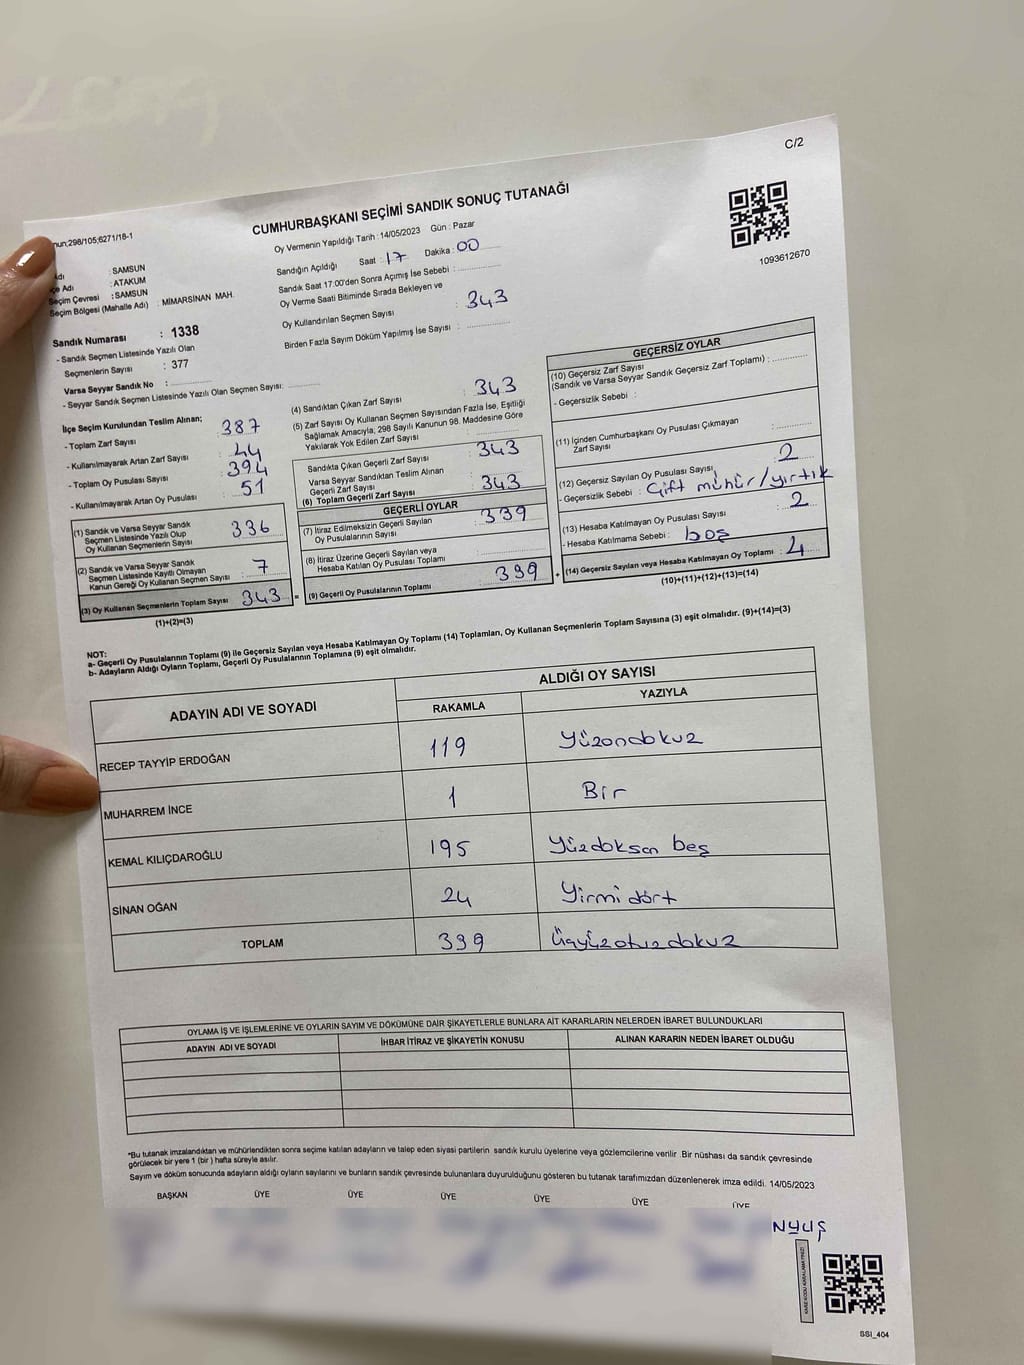 C/2
CUMHURBAŞKANI SEÇİMİ SANDIK SONUÇ TUTANAĞI
Oy Vermenin Yapıldığı Tarih : 14/05/2023 Gün : Pazar
Sandığın Açıldığı Saat : 17 Dakika : 00
Sandık Saat 17:00'den Sonra Açımış İse Sebebi :
Oy Verme Saati Bitiminde Sırada Bekleyen ve
Oy Kullandırılan Seçmen Sayısı : 343
Birden Fazla Sayım Döküm Yapılmış İse Sayısı :
1093612670
nun;298/105;6271/18-1
Adı : SAMSUN
çe Adı : ATAKUM
Seçim Çevresi : SAMSUN
Seçim Bölgesi (Mahalle Adı) : MİMARSİNAN MAH.
Sandık Numarası : 1338
- Sandık Seçmen Listesinde Yazılı Olan
Seçmenlerin Sayısı : 377
Varsa Seyyar Sandık No :
- Seyyar Sandık Seçmen Listesinde Yazılı Olan Seçmen Sayısı:
İlçe Seçim Kurulundan Teslim Alınan;
- Toplam Zarf Sayısı 387
- Kullanılmayarak Artan Zarf Sayısı 44
- Toplam Oy Pusulası Sayısı 394
- Kullanılmayarak Artan Oy Pusulası 51
(1) Sandık ve Varsa Seyyar Sandık
Seçmen Listesinde Yazılı Olup
Oy Kullanan Seçmenlerin Sayısı 336
(2) Sandık ve Varsa Seyyar Sandık
Seçmen Listesinde Kayıtlı Olmayan
Kanun Gereği Oy Kullanan Seçmen Sayısı : 7
(3) Oy Kullanan Seçmenlerin Toplam Sayısı 343 =
(1)+(2)=(3)
(4) Sandıktan Çıkan Zarf Sayısı : 343
(5) Zarf Sayısı Oy Kullanan Seçmen Sayısından Fazla İse, Eşitliği
Sağlamak Amacıyla; 298 Sayılı Kanunun 98. Maddesine Göre
Yakılarak Yok Edilen Zarf Sayısı :
Sandıkta Çıkan Geçerli Zarf Sayısı 343
Varsa Seyyar Sandıktan Teslim Alınan
Geçerli Zarf Sayısı
(6) Toplam Geçerli Zarf Sayısı 343
GEÇERLİ OYLAR
(7) İtiraz Edilmeksizin Geçerli Sayılan
Oy Pusulalarının Sayısı 339
(8) İtiraz Üzerine Geçerli Sayılan veya
Hesaba Katılan Oy Pusulası Toplamı
(9) Geçerli Oy Pusulalarının Toplamı : 339 +
GEÇERSİZ OYLAR
(10) Geçersiz Zarf Sayısı
(Sandık ve Varsa Seyyar Sandık Geçersiz Zarf Toplamı) :
- Geçersizlik Sebebi :
(11) İçinden Cumhurbaşkanı Oy Pusulası Çıkmayan
Zarf Sayısı :
(12) Geçersiz Sayılan Oy Pusulası Sayısı : 2
- Geçersizlik Sebebi : Çift mühür/yırtık
(13) Hesaba Katılmayan Oy Pusulası Sayısı : 2
- Hesaba Katılmama Sebebi : boş
(14) Geçersiz Sayılan veya Hesaba Katılmayan Oy Toplamı : 4
(10)+(11)+(12)+(13)=(14)
NOT:
a- Geçerli Oy Pusulalarının Toplamı (9) ile Geçersiz Sayılan veya Hesaba Katılmayan Oy Toplamı (14) Toplamları, Oy Kullanan Seçmenlerin Toplam Sayısına (3) eşit olmalıdır. (9)+(14)=(3)
b- Adayların Aldığı Oyların Toplamı, Geçerli Oy Pusulalarının Toplamına (9) eşit olmalıdır.
ADAYIN ADI VE SOYADI ALDIĞI OY SAYISI
RAKAMLA YAZIYLA
RECEP TAYYİP ERDOĞAN 119 Yüzondokuz
MUHARREM İNCE 1 Bir
KEMAL KILIÇDAROĞLU 195 Yüzdoksan beş
SİNAN OĞAN 24 Yirmi dört
TOPLAM 339 Üçyüzotuzdokuz
OYLAMA İŞ VE İŞLEMLERİNE VE OYLARIN SAYIM VE DÖKÜMÜNE DAİR ŞİKAYETLERLE BUNLARA AİT KARARLARIN NELERDEN İBARET BULUNDUKLARI
ADAYIN ADI VE SOYADI İHBAR İTİRAZ VE ŞİKAYETİN KONUSU ALINAN KARARIN NEDEN İBARET OLDUĞU
*Bu tutanak imzalandıktan ve mühürlendikten sonra seçime katılan adayların ve talep eden siyasi partilerin sandık kurulu üyelerine veya gözlemcilerine verilir .Bir nüshası da sandık çevresinde
görülecek bir yere 1 (bir ) hafta süreyle asılır.
Sayım ve döküm sonucunda adayların aldığı oyların sayılarını ve bunların sandık çevresinde bulunanlara duyurulduğunu gösteren bu tutanak tarafımızdan düzenlenerek imza edildi. 14/05/2023
BAŞKAN ÜYE ÜYE ÜYE ÜYE ÜYE ÜYE
SSI_404